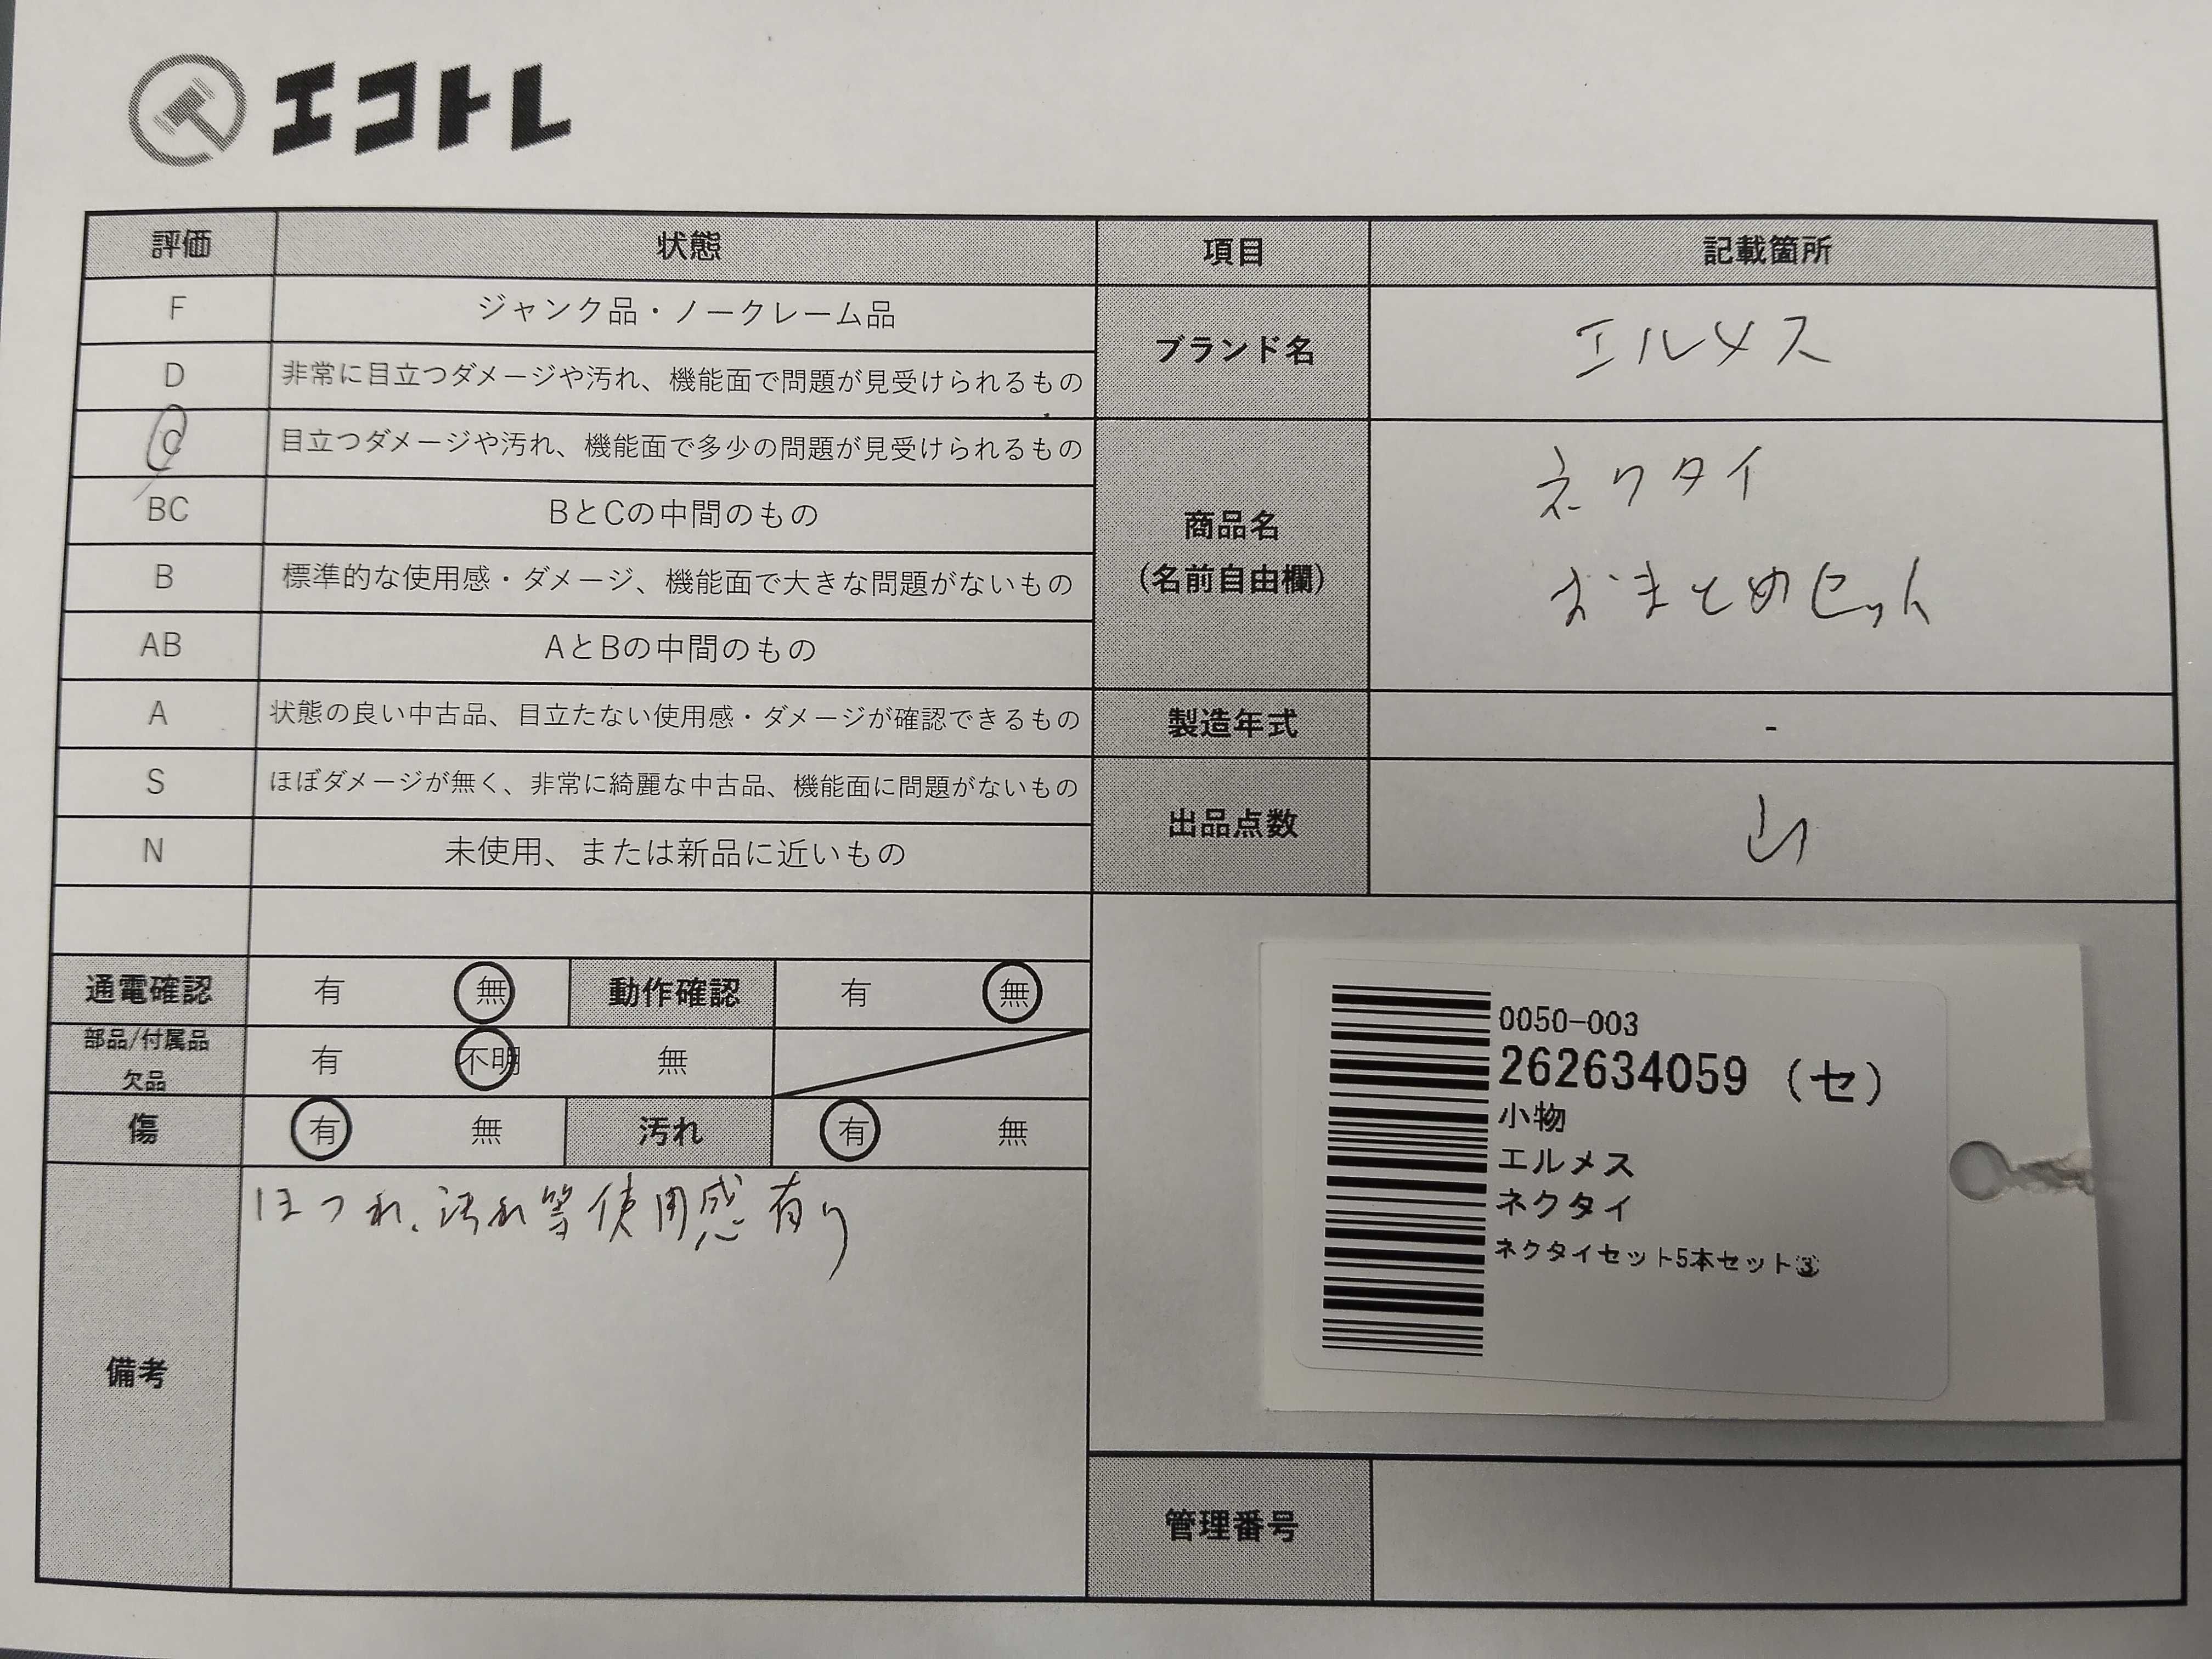 エコトレ
評価 状態 項目 記載箇所
F ジャンク品・ノークレーム品
D 非常に目立つダメージや汚れ、機能面で問題が見受けられるもの
ブランド名 エルメス
C 目立つダメージや汚れ、機能面で多少の問題が見受けられるもの
BC BとCの中間のもの
B 標準的な使用感・ダメージ、機能面で大きな問題がないもの
AB AとBの中間のもの
商品名
(名前自由欄)
ネクタイ
おまとめセット
A 状態の良い中古品、目立たない使用感・ダメージが確認できるもの
製造年式 -
S ほぼダメージが無く、非常に綺麗な中古品、機能面に問題がないもの
N 未使用、または新品に近いもの
出品点数
通電確認 有 無 動作確認 有 無
部品/付属品
欠品
有 不明 無
傷 有 無 汚れ 有 無
備考
ほつれ、汚れ等使用感有り
0050-003
262634059 (セ)
小物
エルメス
ネクタイ
ネクタイセット5本セット③
管理番号